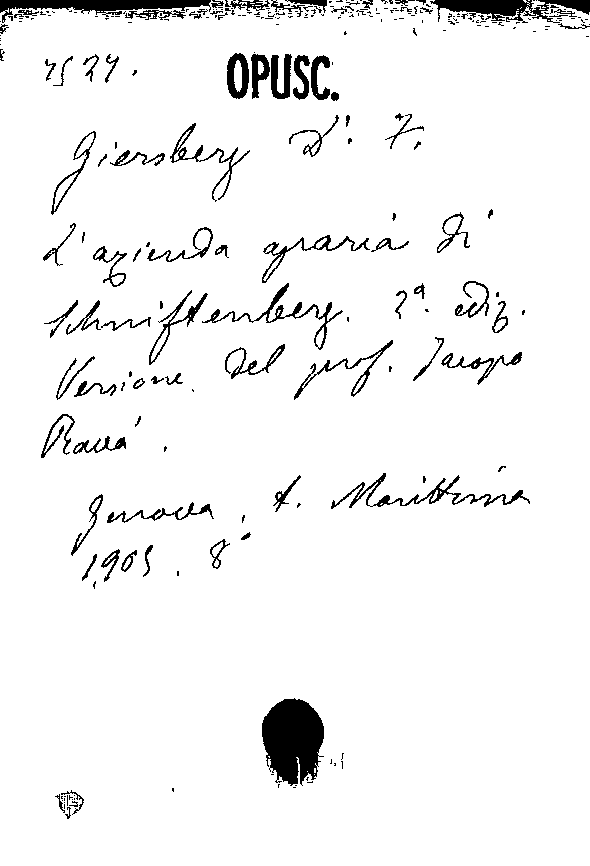 7527. OPUSC.
Giersberg Dr. F.
L'azienda agraria di
Schniftenberg. 2ª ediz.
Versione del prof. Jacopo
Ravà.
Genova, t. Marittima
1905. 8°